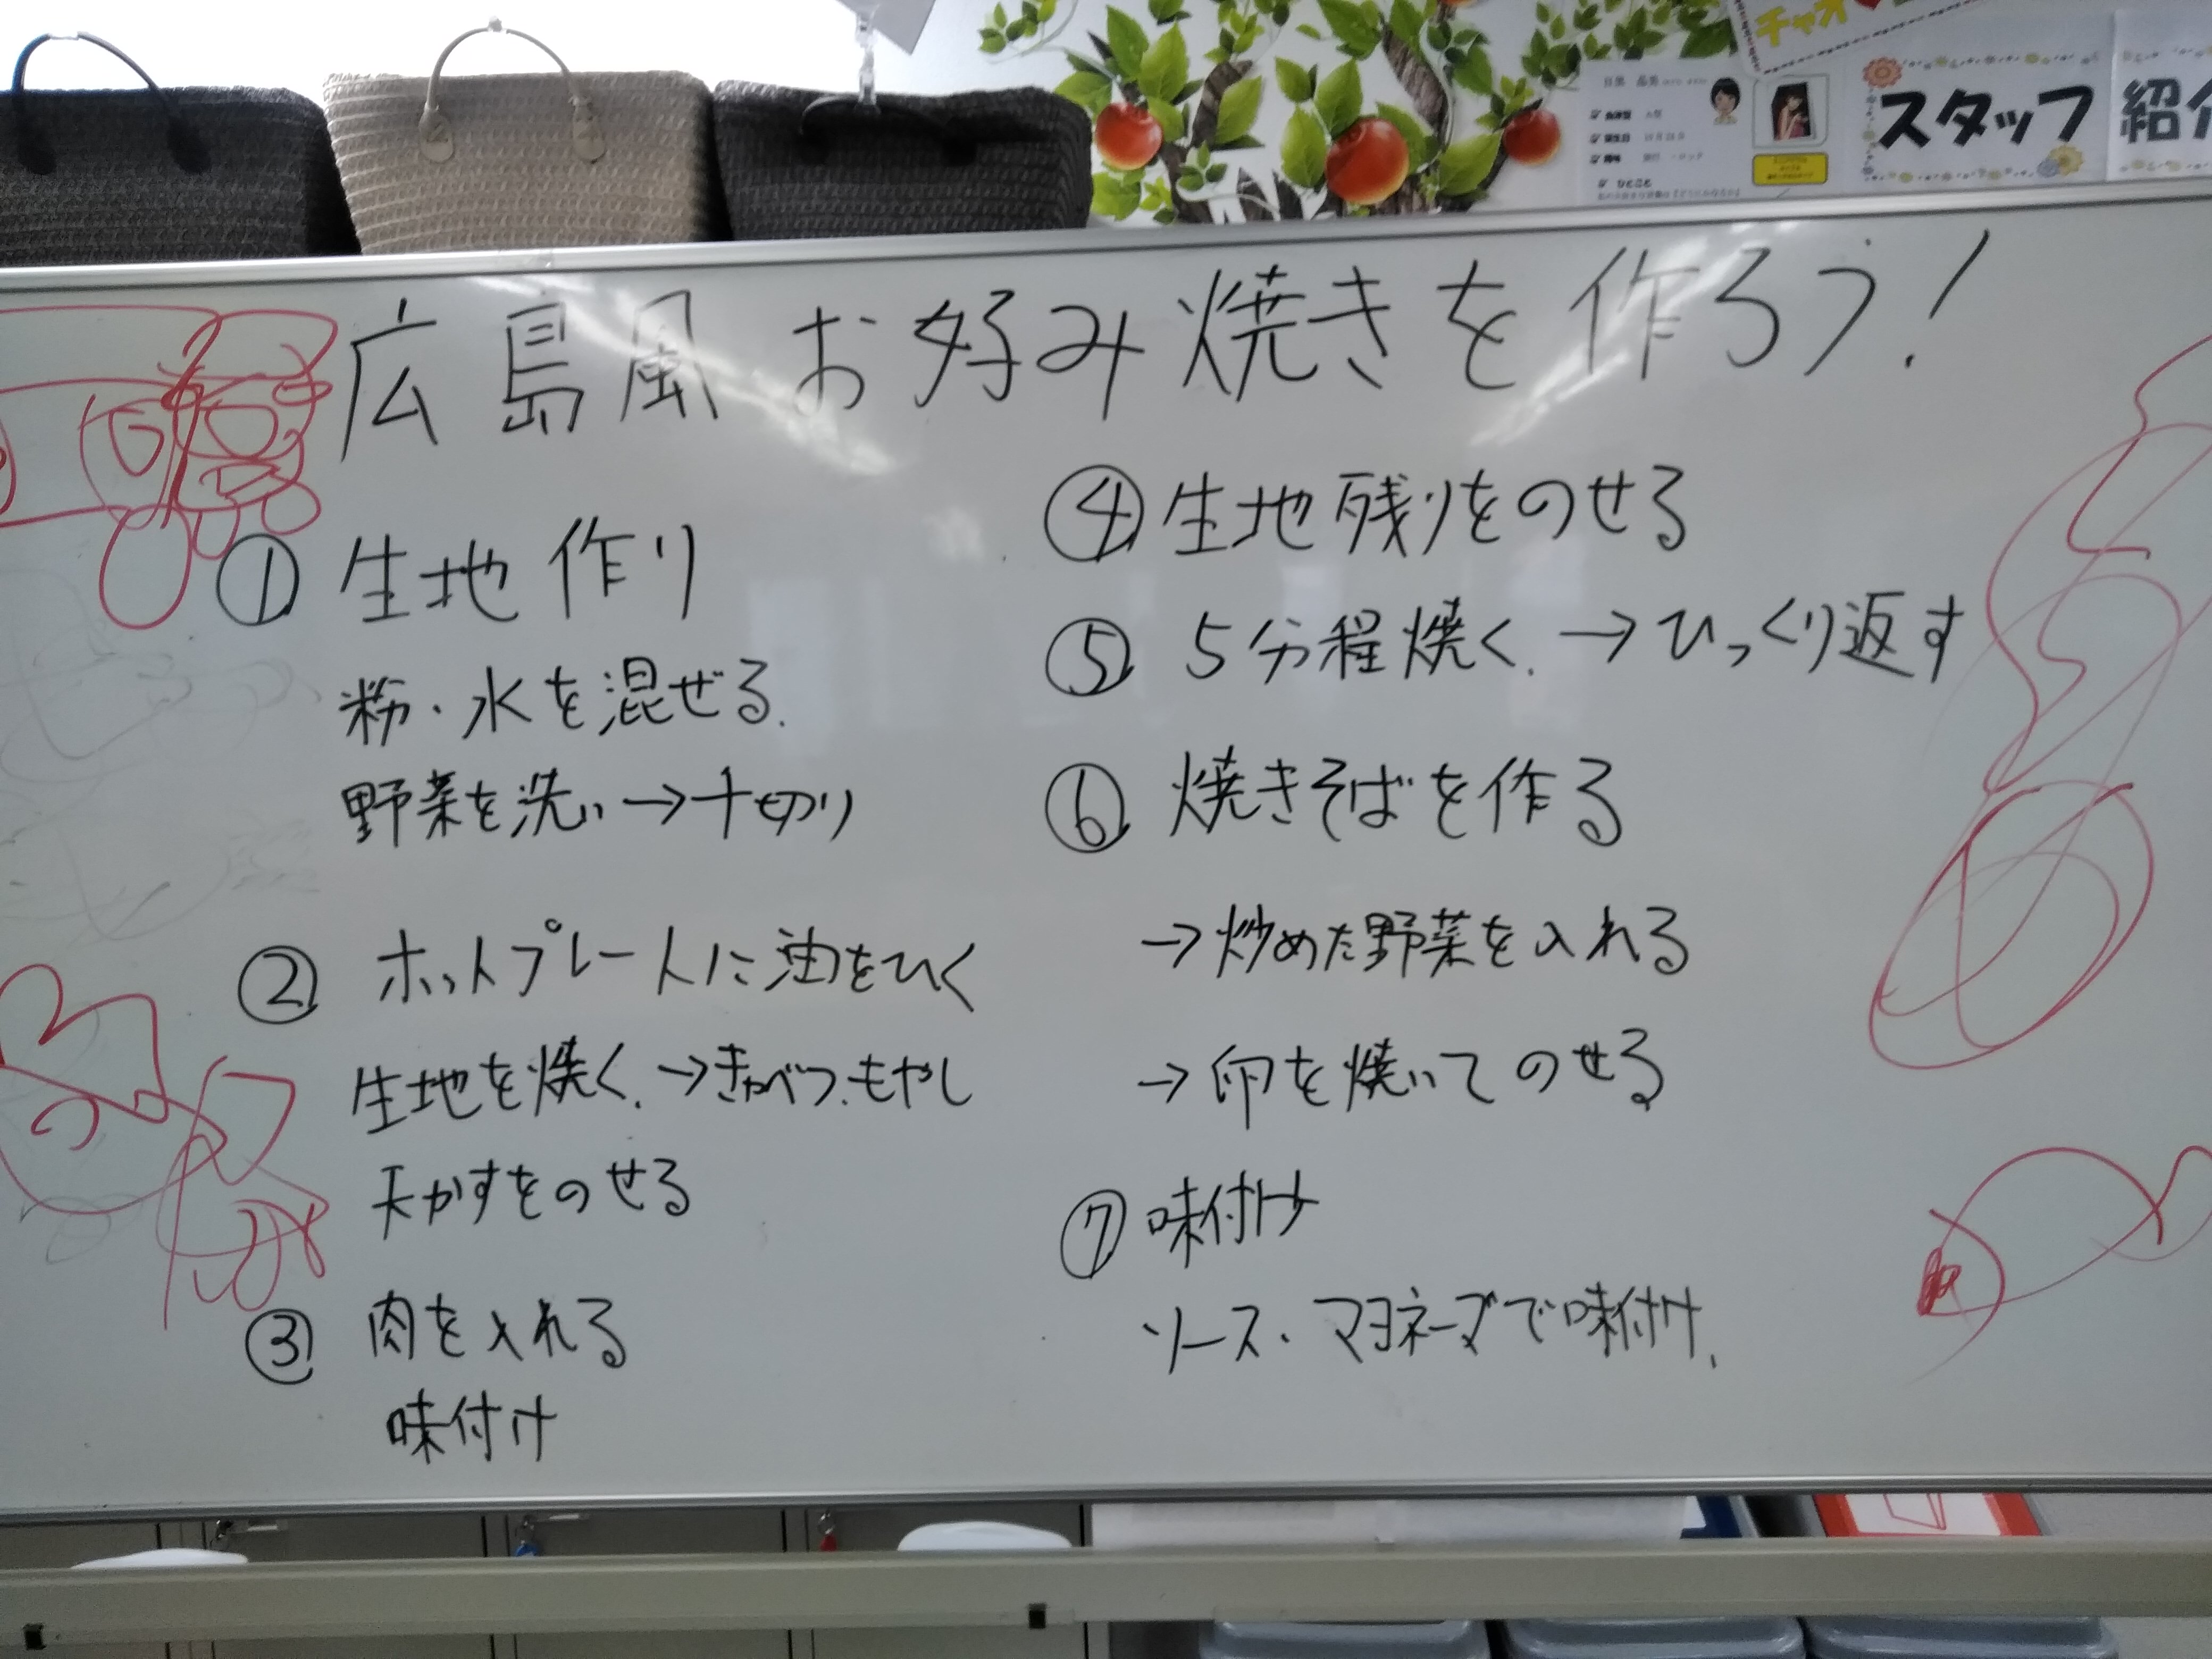 チャオ
スタッフ 紹介
ひとこと
広島風お好み焼きを作ろう!
① 生地作り
粉・水を混ぜる.
野菜を洗い→千切り
② ホットプレートに油をひく
生地を焼く.→きゃべつ.もやし
天かすをのせる
③ 肉を入れる
味付け
④ 生地残りをのせる
⑤ 5分程焼く.→ひっくり返す
⑥ 焼きそばを作る
→炒めた野菜を入れる
→卵を焼いてのせる
⑦ 味付け
ソース、マヨネーズで味付け.